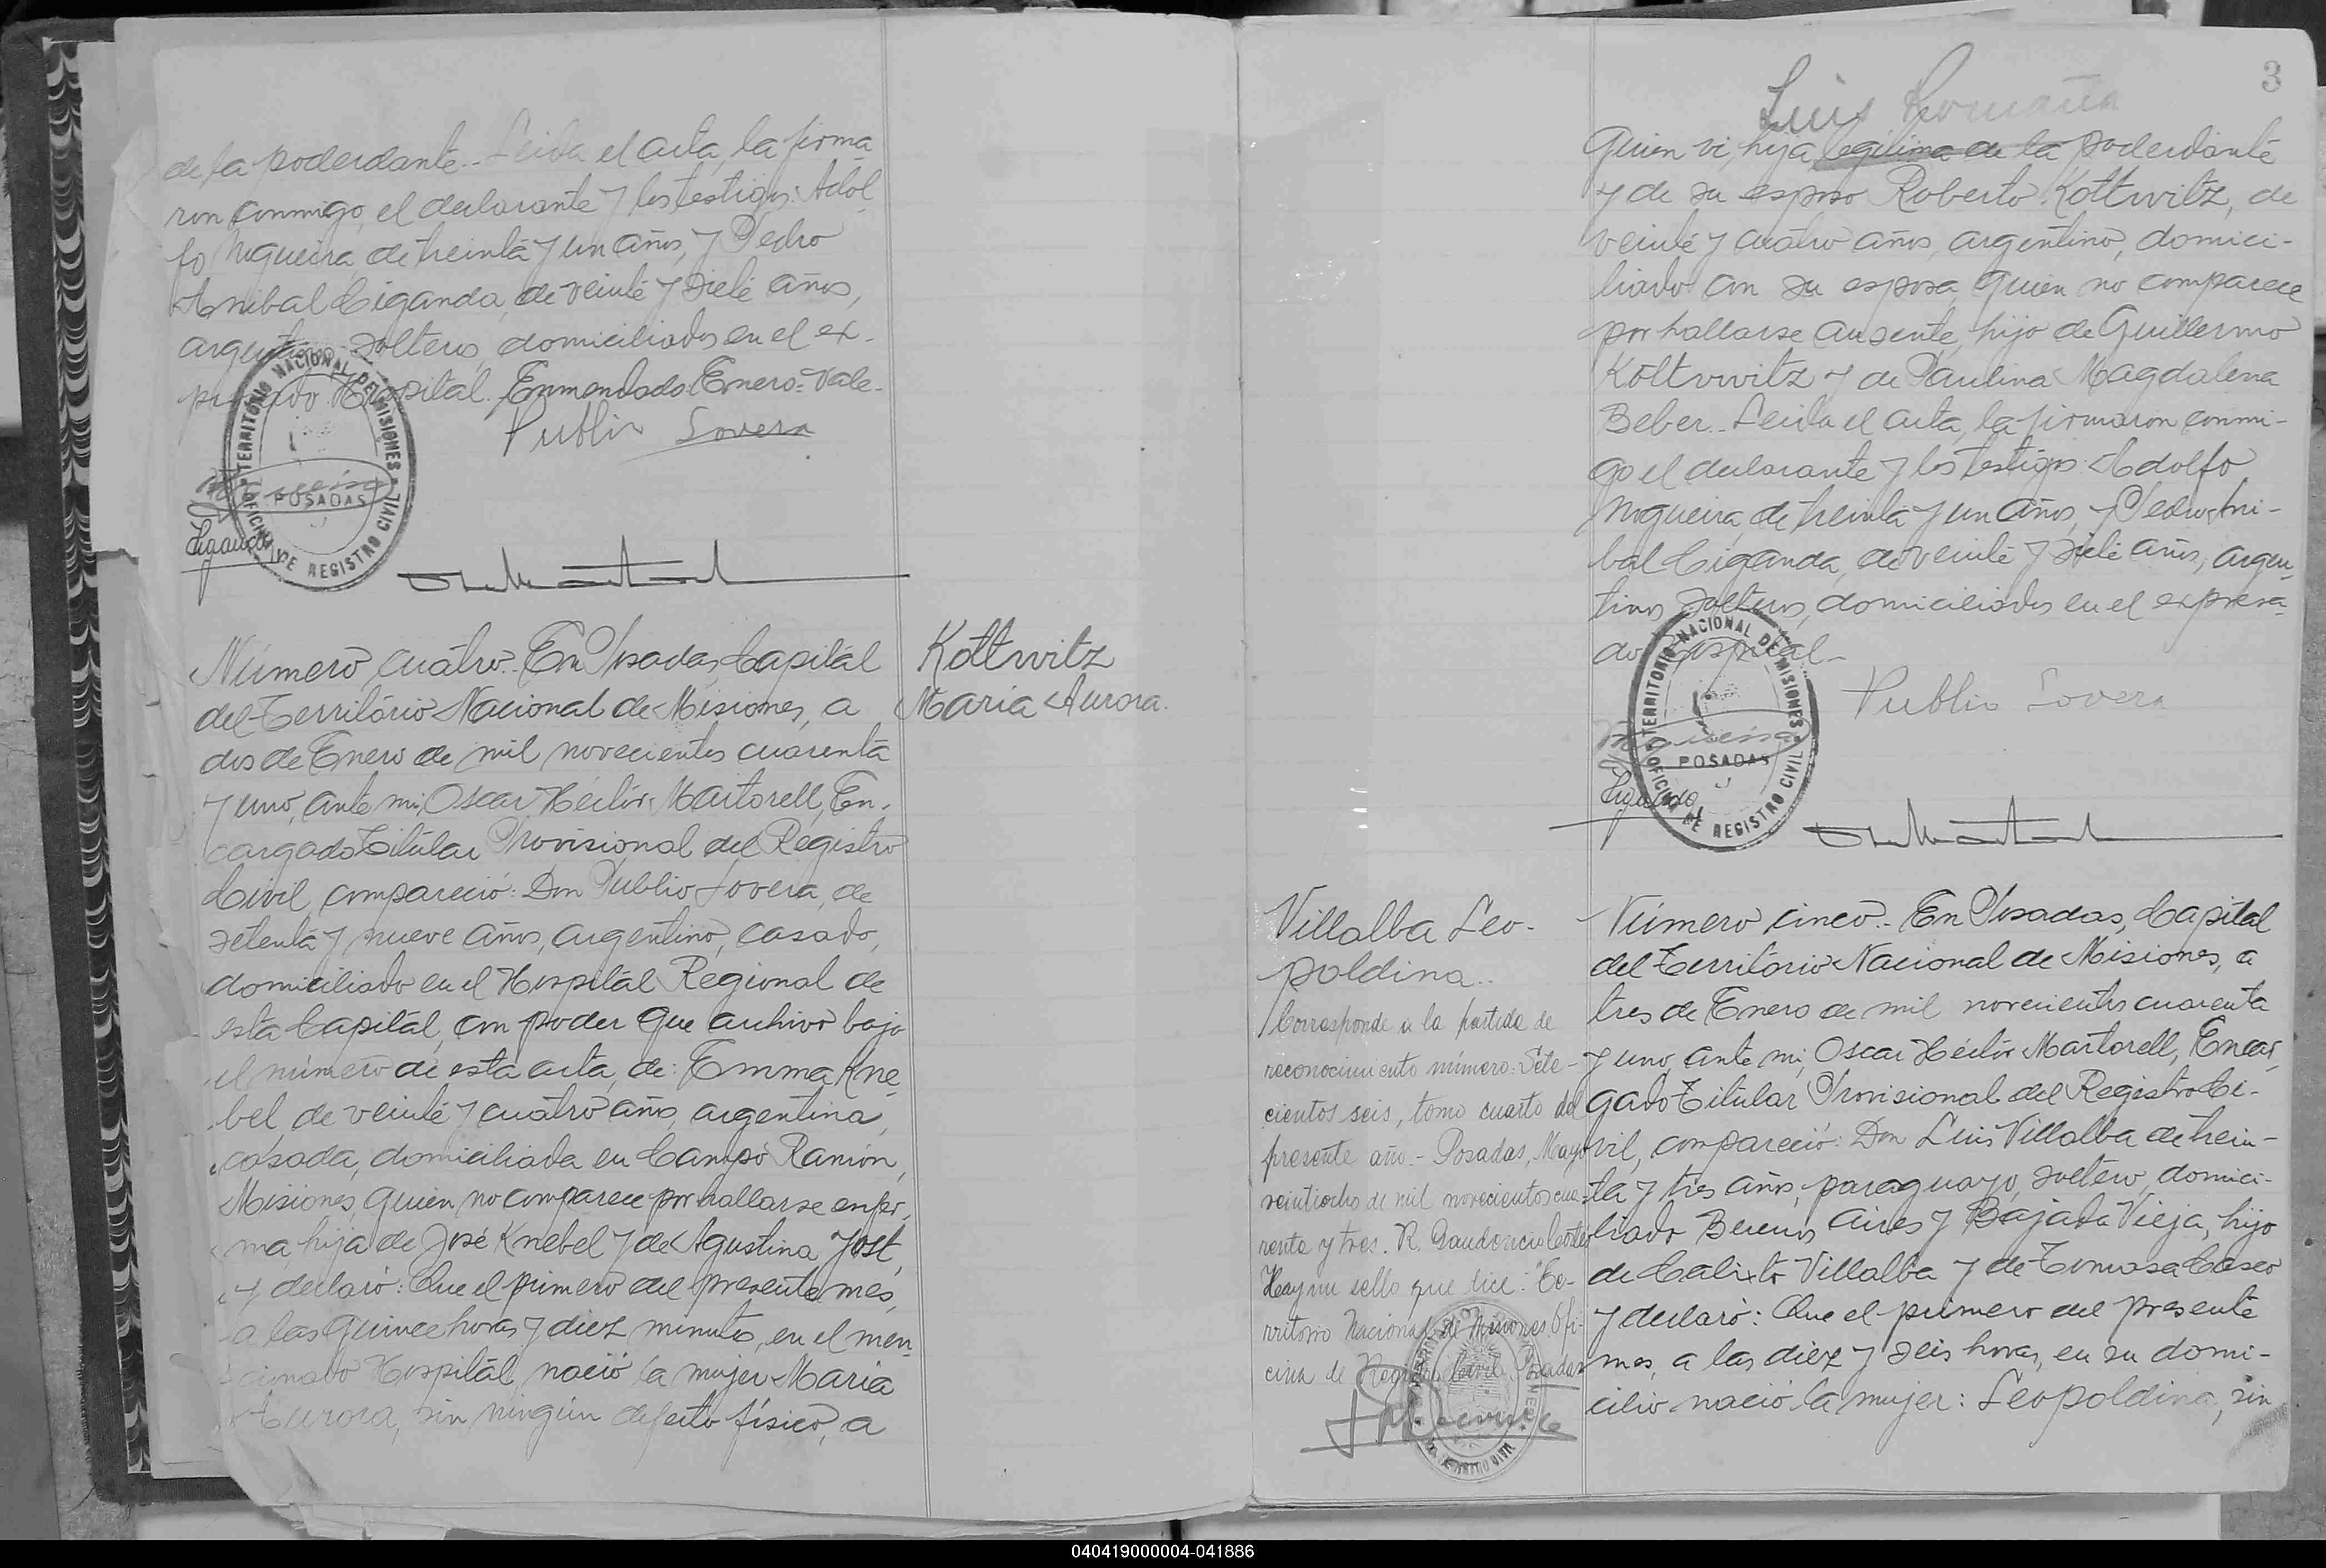 de la poderdante.- Leida el acta, la firma-
ron conmigo, el declarante y los testigos: Adol-
fo Nigueira, de treinta y un años, y Pedro
Anibal Ciganda, de veinte y siete años,
argentinos solteros, domiciliados en el ex-
presado Hospital. Enmendado Enero= Vale-
Publio Lovera
TERRITORIO NACIONAL DE MISIONES
POSADAS
OFICINA DE REGISTRO CIVIL
Número cuatro.- En Posadas, Capital
del Territorio Nacional de Misiones, a
dos de Enero de mil novecientos cuarenta
y uno, ante mi, Oscar Héctor Martorell, En-
cargado Titular Provisional del Registro
Civil, compareció: Don Publio Lovera, de
setenta y nueve años, argentino, casado,
domiciliado en el Hospital Regional de
esta Capital, con poder que archivo bajo
el número de esta acta, de: Emma Kne-
bel, de veinte y cuatro años, argentina,
casada, domiciliada en Campo Ramón,
Misiones, quien no comparece por hallarse enfer-
ma, hija de José Knebel y de Agustina Jost,
y declaró: Que el primero del presente mes,
a las quince horas y diez minutos, en el men-
cionado Hospital, nació la mujer Maria
Aurora, sin ningún defecto físico, a
Kottwitz
Maria Aurora.
3
Luis Romaña
quien vi, hija legitima de la poderdante
y de su esposo Roberto Kottwitz, de
veinte y cuatro años, argentino, domici-
liado con su esposa, quien no comparece
por hallarse ausente, hijo de Guillermo
Kottwitz y de Paulina Magdalena
Beber.- Leida el acta, la firmaron conmi-
go el declarante y los testigos: Adolfo
Nigueira, de treinta y un años, y Pedro Ani-
bal Ciganda, de veinte y siete años, argen-
tinos solteros, domiciliados en el expresa-
do Hospital-
Publio Lovera
TERRITORIO NACIONAL DE MISIONES
POSADAS
OFICINA DE REGISTRO CIVIL
Villalba Leo-
poldina..
Corresponde a la partida de
reconocimiento número: Sete-
cientos seis, tomo cuarto del
presente año.- Posadas, Mayo
veintiocho de mil novecientos cua-
renta y tres. R. Gaudencio Cortés
Hay un sello que dice: "Te-
rritorio Nacional de Misiones Ofi-
cina de Registro Civil Posadas
Número cinco.- En Posadas, Capital
del Territorio Nacional de Misiones, a
tres de Enero de mil novecientos cuarenta
y uno, ante mi, Oscar Héctor Martorell, Encar-
gado Titular Provisional del Registro Ci-
vil, compareció: Don Luis Villalba de trein-
ta y tres años, paraguayo, soltero, domici-
liado Buenos Aires y Bajada Vieja, hijo
de Calixto Villalba y de Tomasa Caseo
y declaró: Que el primero del presente
mes, a las diez y seis horas, en su domi-
cilio nació la mujer: Leopoldina, sin
040419000004-041886